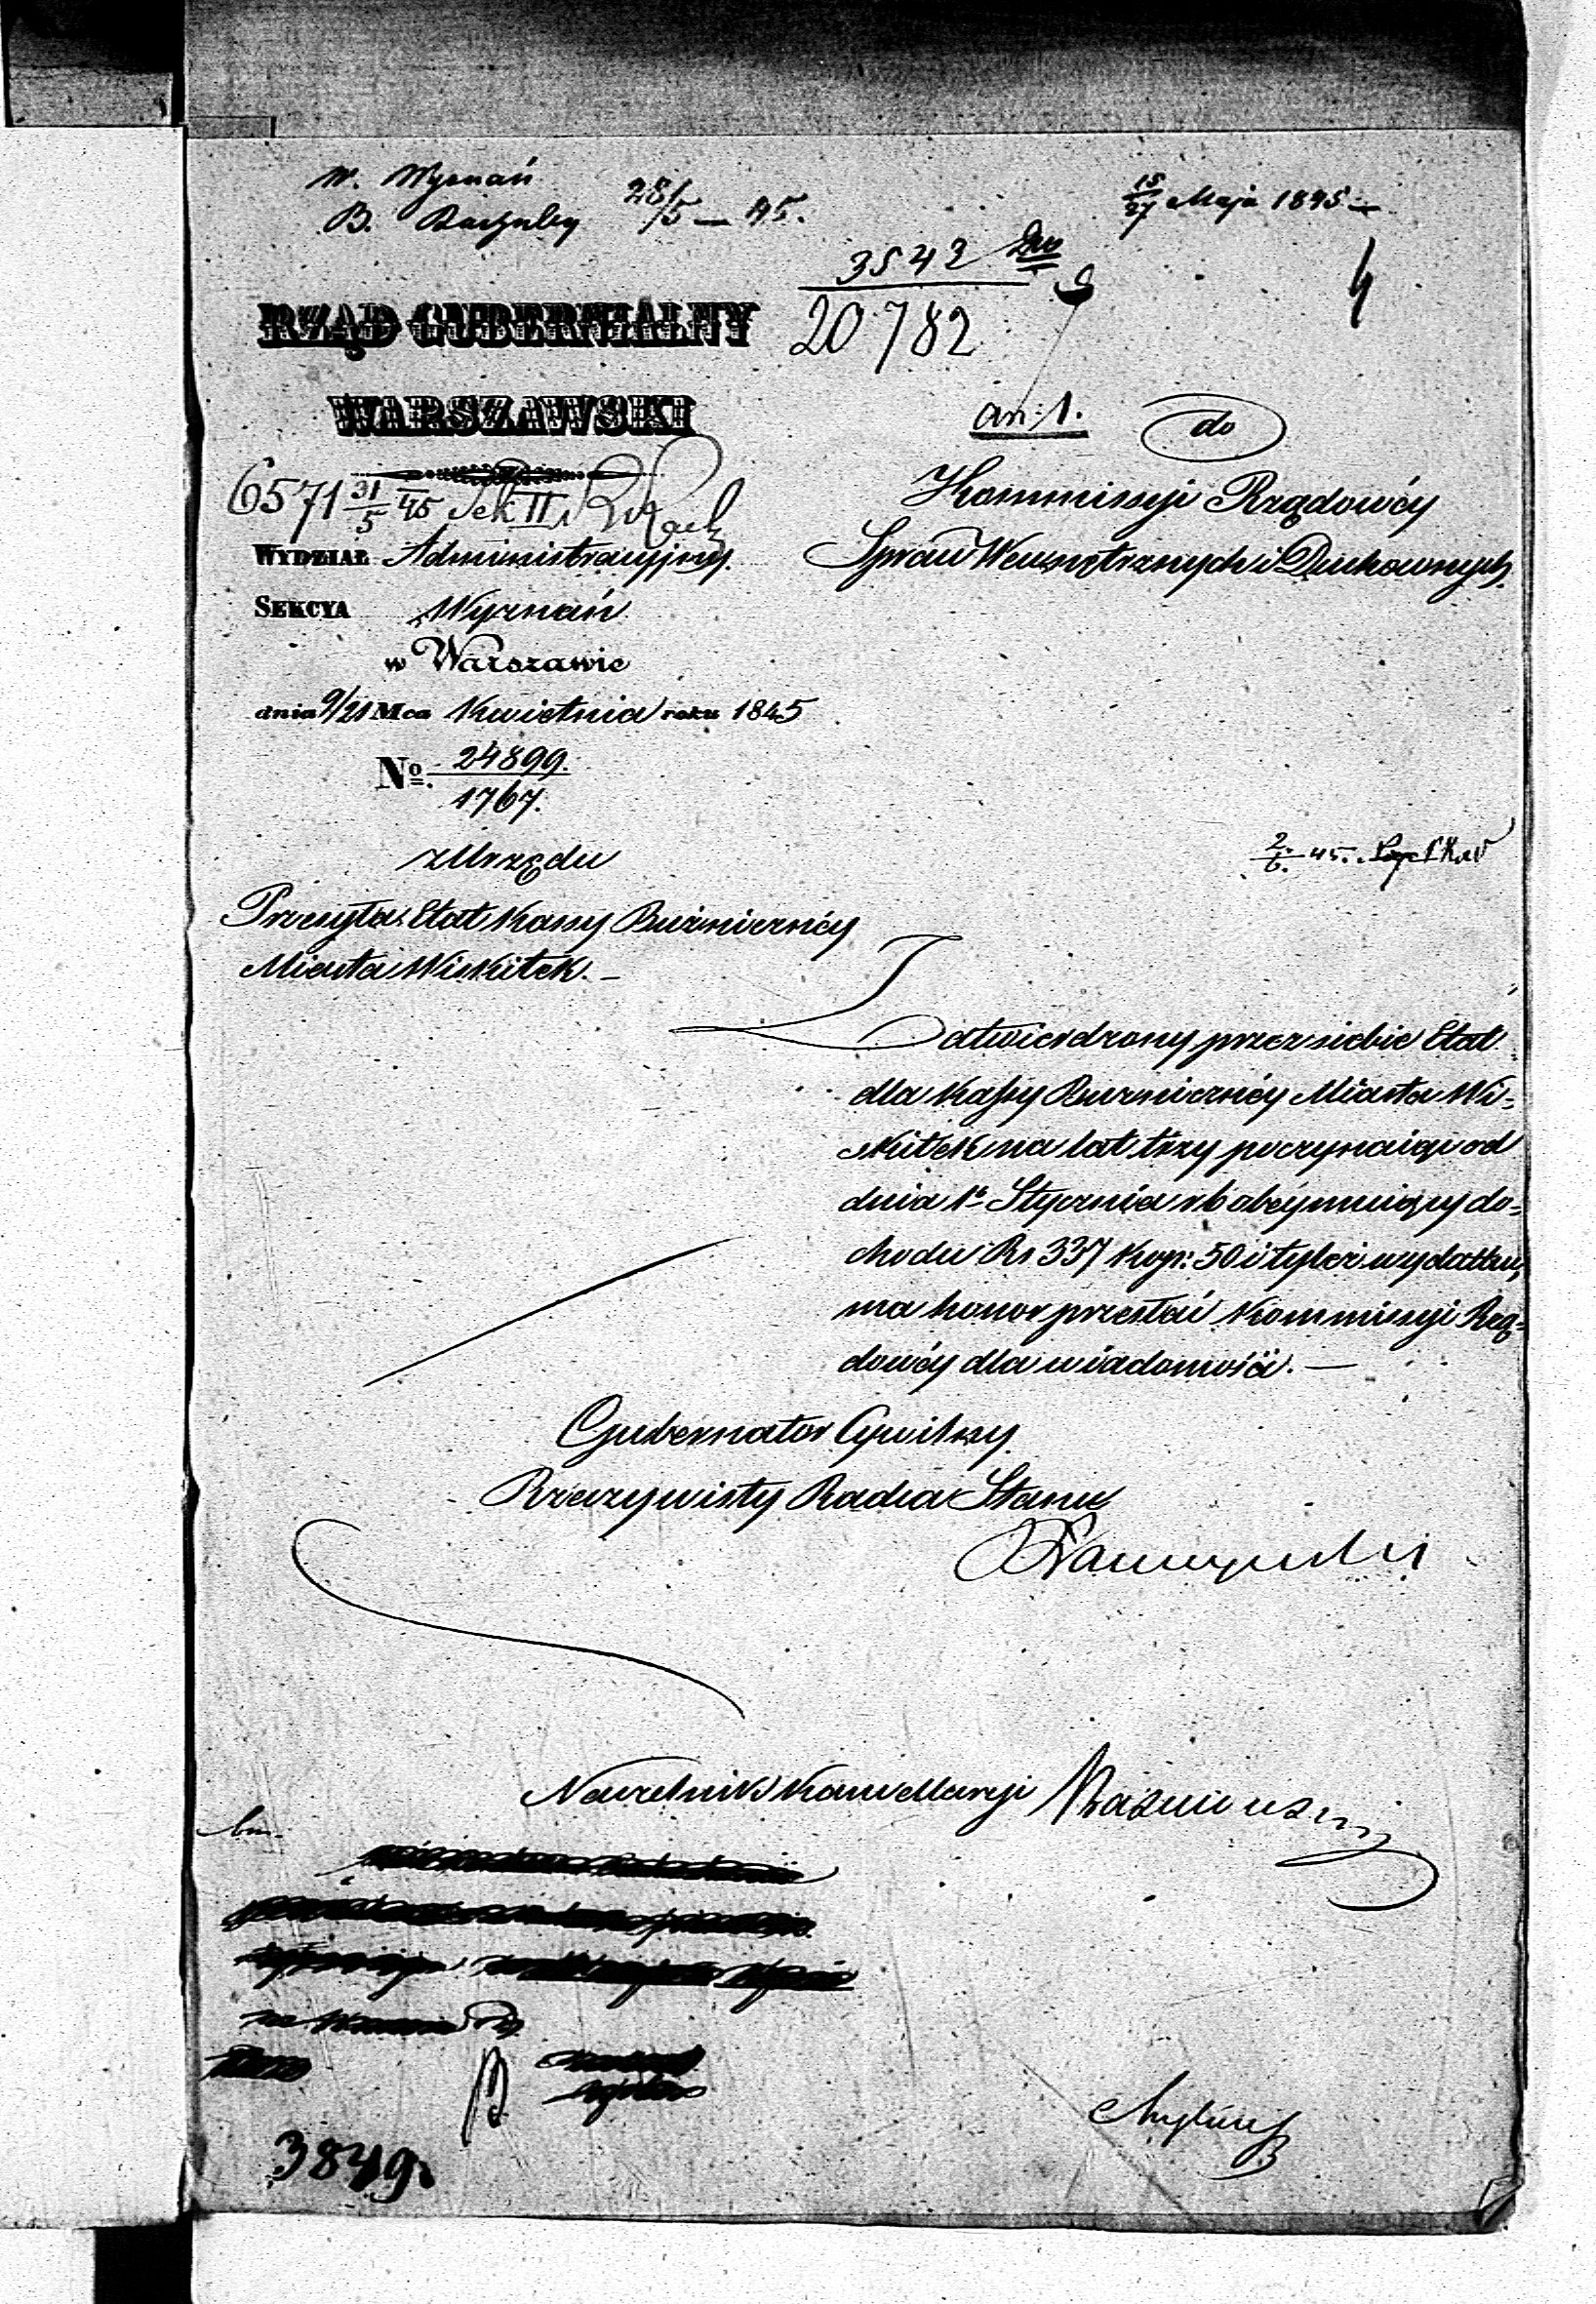 W. Wyznań
B. 28/5 — 45.
15/27 Maja 1845 —
3542
20782
4
RZĄD GUBERNIALNY
WARSZAWSKI
an: 1.
do
Kommissyi Rządowéy
Spraw Wewnętrznych i Duchownych.
6571 31/5 45 Sek II
WYDZIAŁ Administracyjny.
SEKCYA Wyznań
w Warszawie
dnia 9/21 Mca Kwietnia roku 1845
No. 24899.
1767.
z Urzędu
2/6 45.
Przesyła Etat Kassy Bużniczney
Miasta Wiskitek. —
Zatwierdzony przez siebie Etat
dla Kassy Bużniczney Miasta Wi-
skitek na lat trzy poczynaiąc od
dnia 1o Stycznia r b obeymuiący do-
chodu Rs 337 kop: 50 i tyleż wydatku,
ma honor przesłać Kommissyi Rzą-
dowéy dla wiadomości. —
Gubernator Cywilny
Rzeczywisty Radca Stanu
Naczelnik Kancellaryi
3849.